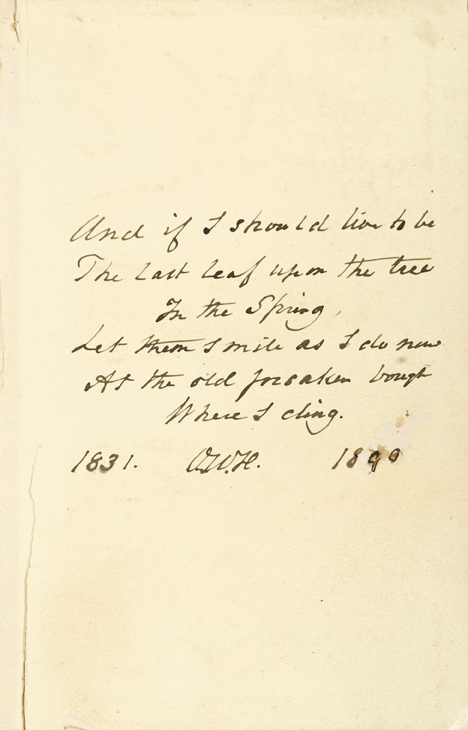 And if I should live to be
The last leaf upon the tree
In the Spring,
Let them smile as I do now
At the old forsaken bough
Where I cling.
1831. O.W.H. 1890